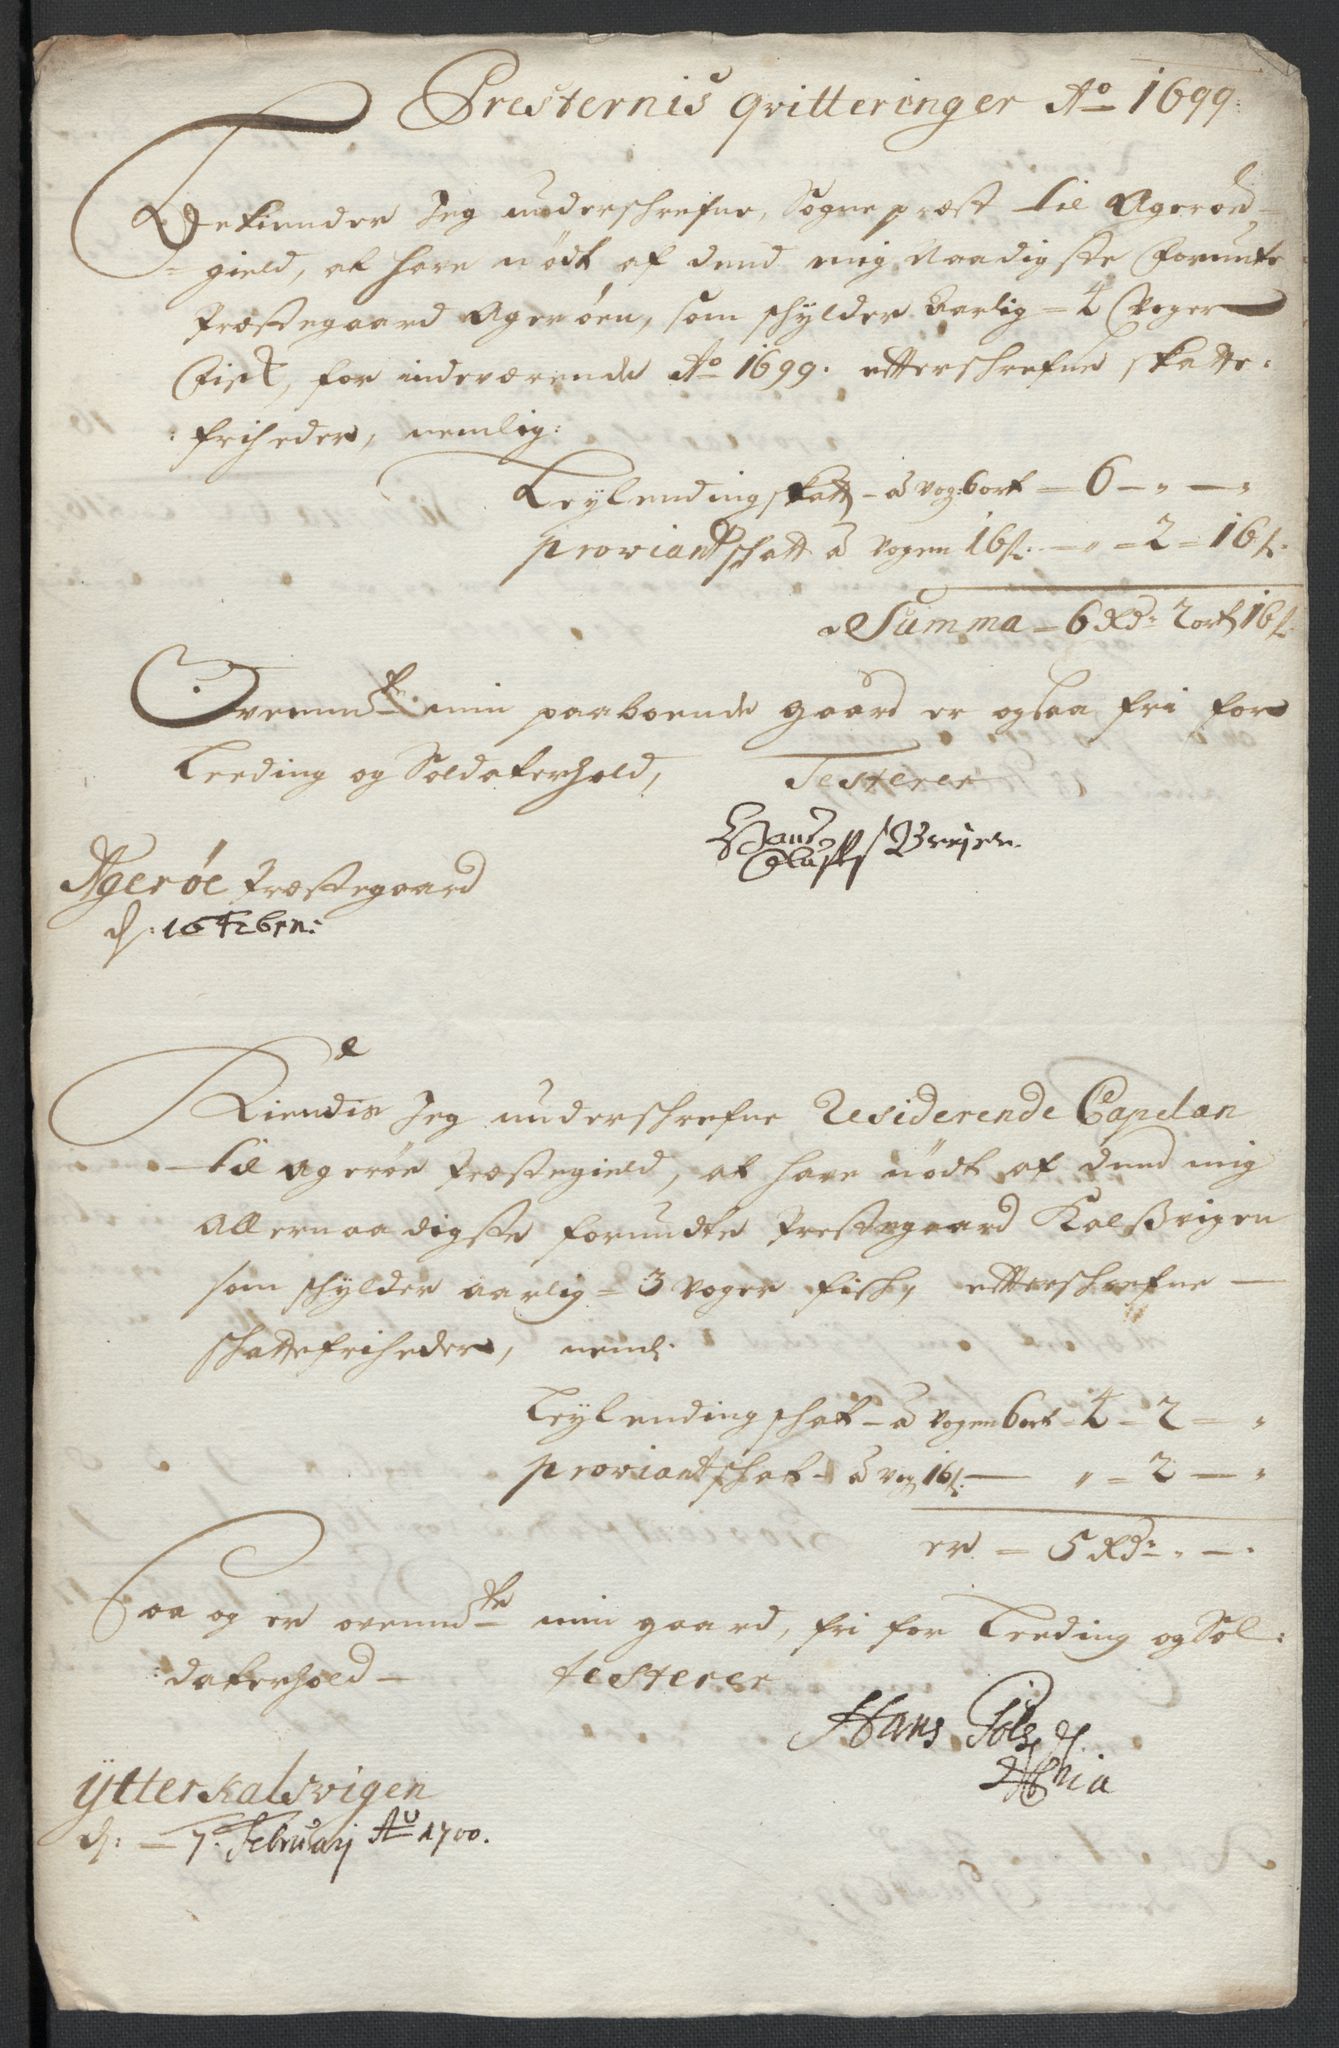 Presternis qvitteringer Ao 1699.
Bekiender Jeg underschrefne, Sogne præst til Agerøe
gield, at have nødt af dend mig Naadigste forunte
Præstegaard Agerøen, som schylder Aarlig = 4 Voger
Fisk, for indeværende Ao 1699. efterschrefne skatte:
:friheder, nemlig:
Leylendingskatt – à vog: 6 ort – 6 – " – "
proviantschatt à vogen 16 s. – " = 2 = 16 s.
Summa – 6 Rdr 2 ort 16 s.
Ovenmte min paaboende gaard er ogsaa fri for
Leeding og Soldaterhold, Testerer
Hans
Olufs
Agerøe Præstegaard
d: 16 Febru:
Kiendis Jeg underschrefne Residerende Capelan
til Agerøe Præstegield, at have nødt af dend mig
Allernaadigste forundte Prestegaard Kalsvigen
som schylder aarlig = 3 voger fisch, efterschrefne
schattefriheder, neml:
Leylendingschat – à vogen 6 ort = 4 – 2 = "
proviantschat – à vog 16 s: – " = 2 – "
er = 5 Rdr " – "
Saa og er ovenmte min gaard, fri for Leeding og Sol:
:daterhold – testerer
Hans
Ytterkalsvigen
d: – 7. Februarij Ao 1700.